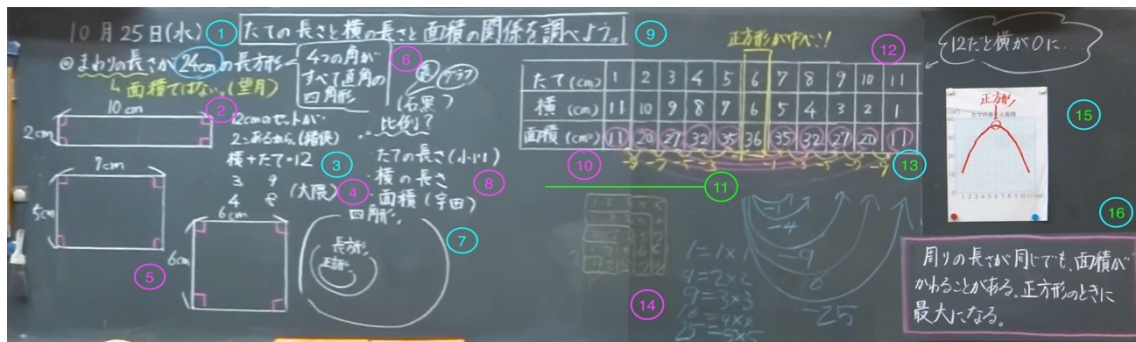 10月25日(水) ① たての長さと横の長さと面積の関係を調べよう。 ⑨
◎まわりの長さが24cmの長方形
↳面積ではない。(望月)
4つの角が
すべて直角の
四角形
⑥
表 グラフ
(石黒)
比例?
10cm ②
2cm
12cmのセットが
2こあるから。
横+たて=12 ③
3 9
4 8
(大隈) ④
・たての長さ(小川)
・横の長さ
・面積(宇田)
⑧
7cm
5cm
6cm
6cm
⑤
四角形
長方形
正方形
⑦
正方形がすべて!
⑫
たて(cm) 1 2 3 4 5 6 7 8 9 10 11
横(cm) 11 10 9 8 7 6 5 4 3 2 1
面積(cm²) 11 20 27 32 35 36 35 32 27 20 11
⑩ ⑪ ⑬
1=1×1
4=2×2
9=3×3
16=4×4
25=5×5
⑭
-1
-4
-9
-25
12だと横が0に…
正方形
たての長さと面積
⑮
⑯
周りの長さが同じでも、面積が
かわることがある。正方形のときに
最大になる。